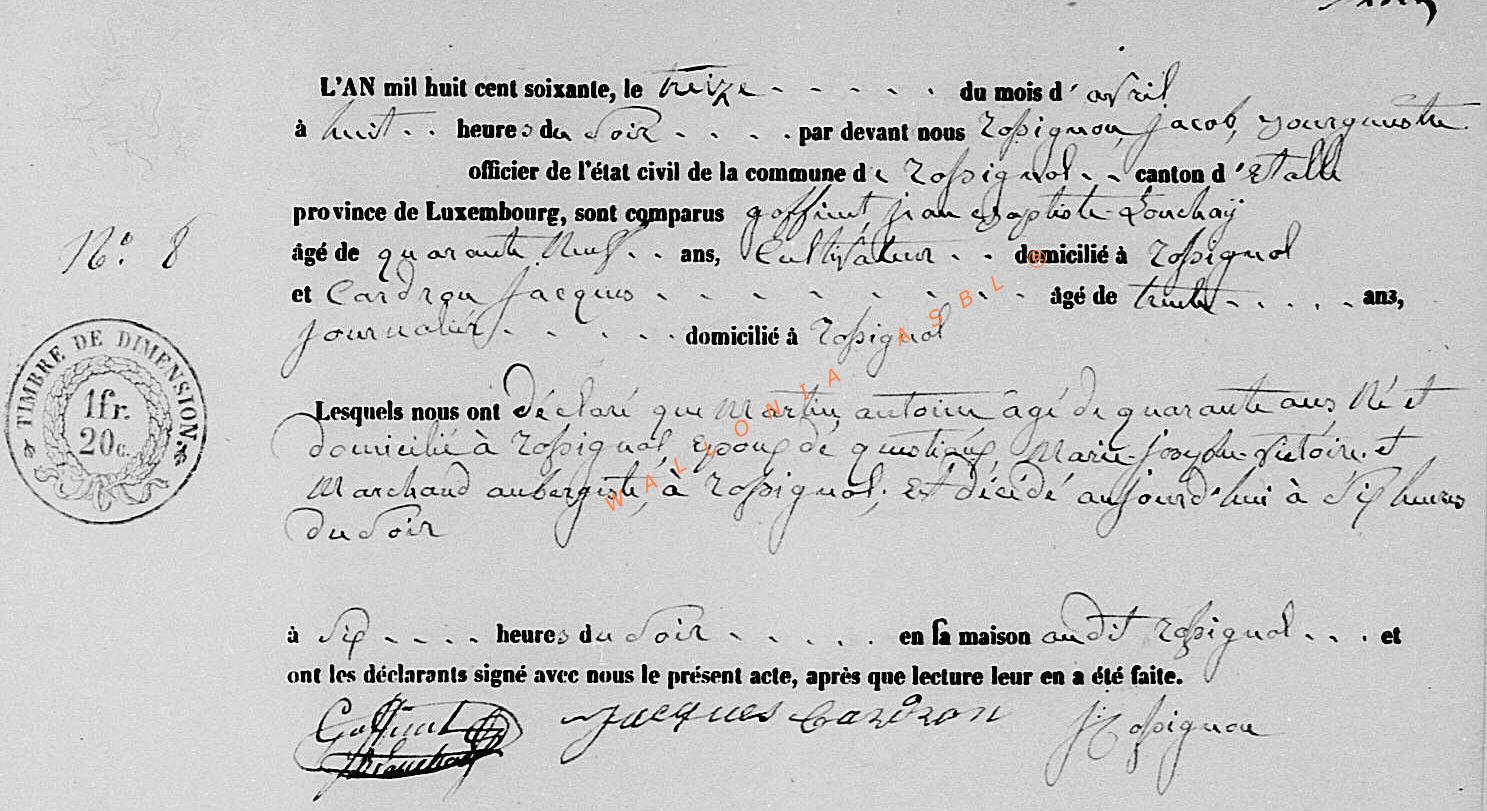 L'AN mil huit cent soixante, le treize - - - - - du mois d'avril
à huit - - heures du Soir - - - - par devant nous Rossignon, Jacob, Bourgmestre
officier de l'état civil de la commune de Rossignol - - canton d'Etalle
province de Luxembourg, sont comparus goffinet, jean Baptiste
N.º 8
âgé de quarante Neuf - - ans, Cultivateur - - domicilié à Rossignol
et Cardron Jacques - - - - - - - - - âgé de trente - - - - - ans,
journalier - - - - - - domicilié à Rossignol
TIMBRE DE DIMENSION.
1 fr.
20 c.
Lesquels nous ont déclaré que Martin, antoine âgé de quarante ans, Né et
domicilié à Rossignol, Epoux de Marie-Joseph-Victoire et
Marchand aubergiste, à Rossignol, Est décédé aujourd'hui à Six heures
du Soir
à Six - - - - heures du Soir - - - - - en sa maison audit Rossignol - - - et
ont les déclarants signé avec nous le présent acte, après que lecture leur en a été faite.
Goffinet Jacques Cardron Rossignon
WALLONIA ASBL ©